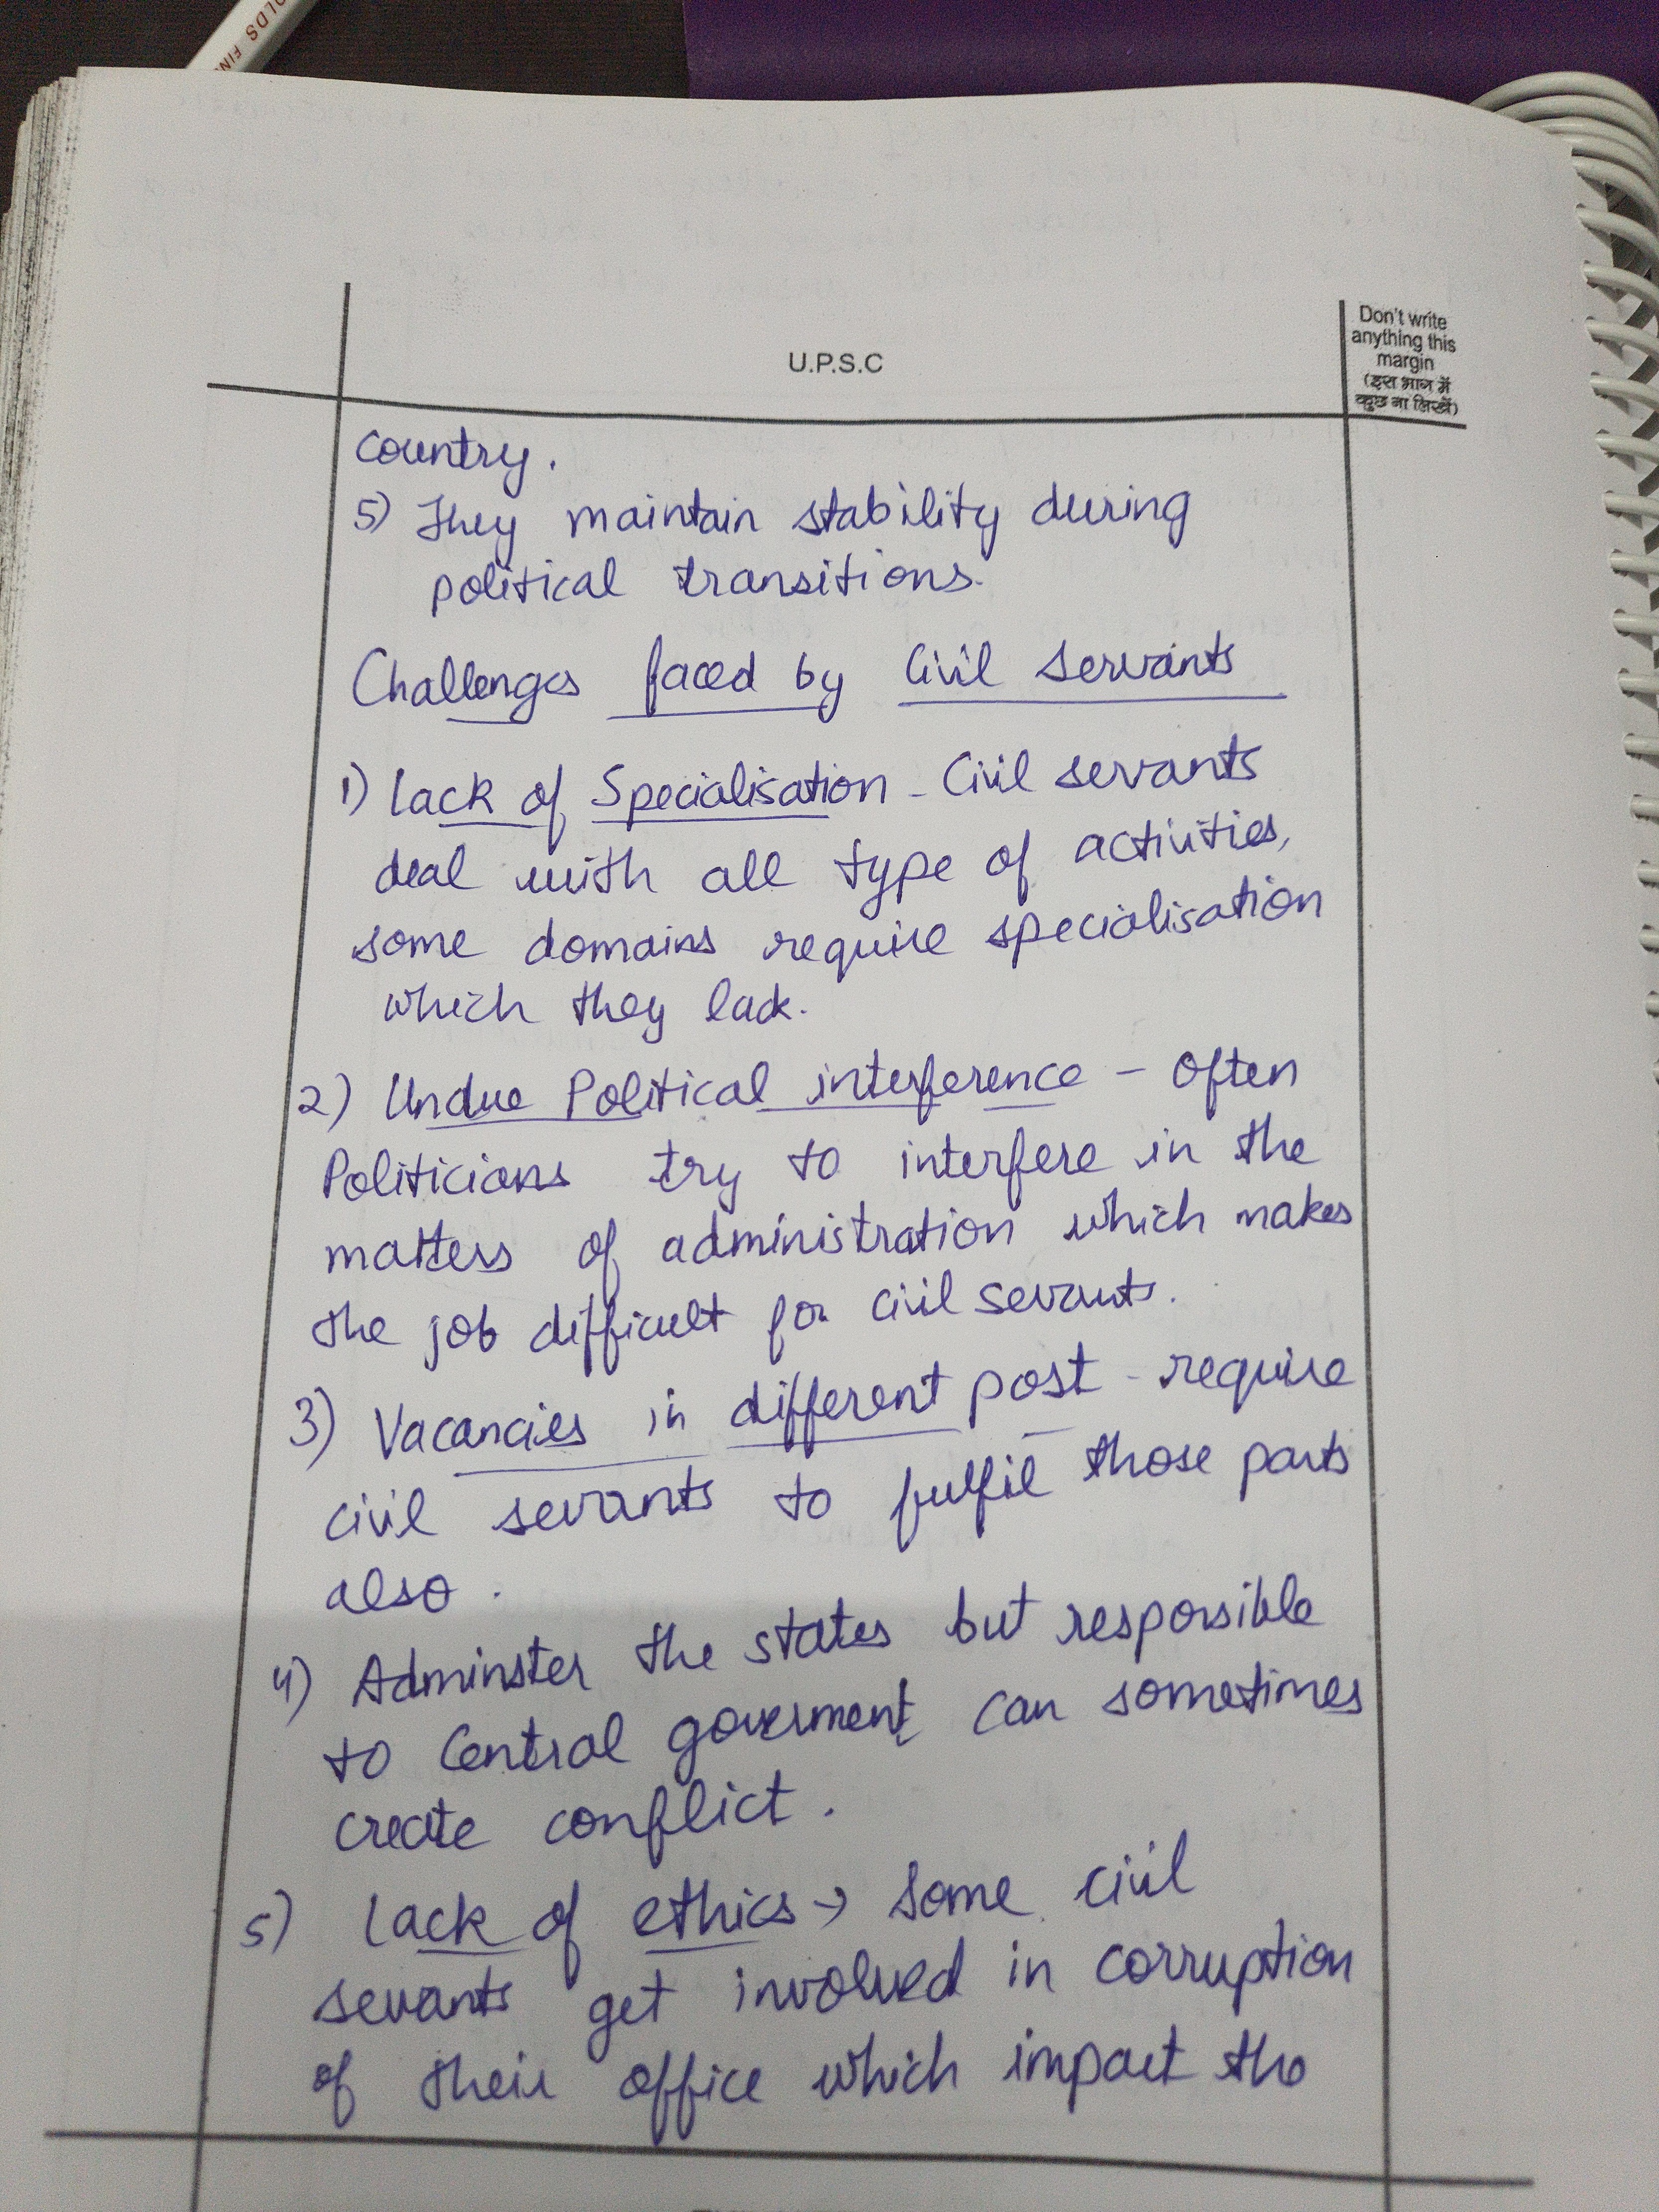 OLDS FIN
U.P.S.C
Don't write
anything this
margin
(इस भाग में
कुछ ना लिखें)
country.
5) They maintain stability during
political transitions.
Challenges faced by Civil Servants
1) Lack of Specialisation - Civil servants
deal with all type of activities,
some domains require specialisation
which they lack.
2) Undue Political interference - Often
Politicians try to interfere in the
matters of administration which makes
the job difficult for civil sevants.
3) Vacancies in different post - require
civil sevants to fulfil those parts
also.
4) Adminster the states but responsible
to Central goverment can sometimes
create conflict.
5) Lack of ethics → Some civil
sevants get involved in corruption
of their office which impact the